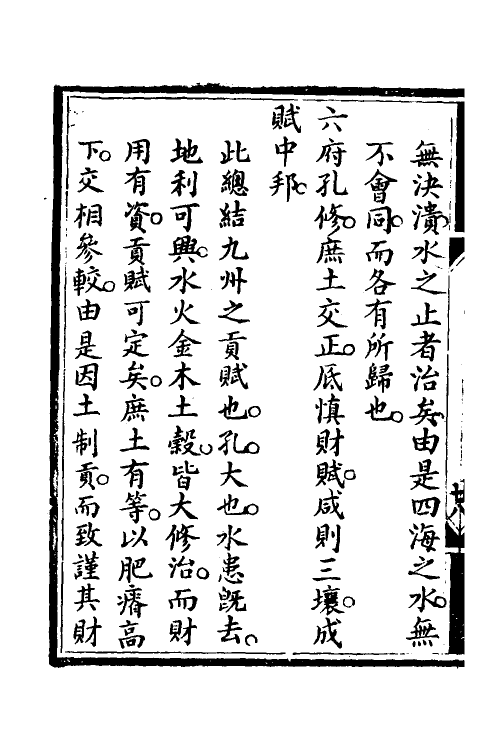 無決潰水之止者治矣由是四海之水無
不會同而各有所歸也
六府孔修庶土交正厎慎財賦咸則三壤成
賦中邦
此總結九州之貢賦也孔大也水患既去
地利可興水火金木土穀皆大修治而財
用有資貢賦可定矣庶土有等以肥瘠高
下交相參較由是因土制貢而致謹其財